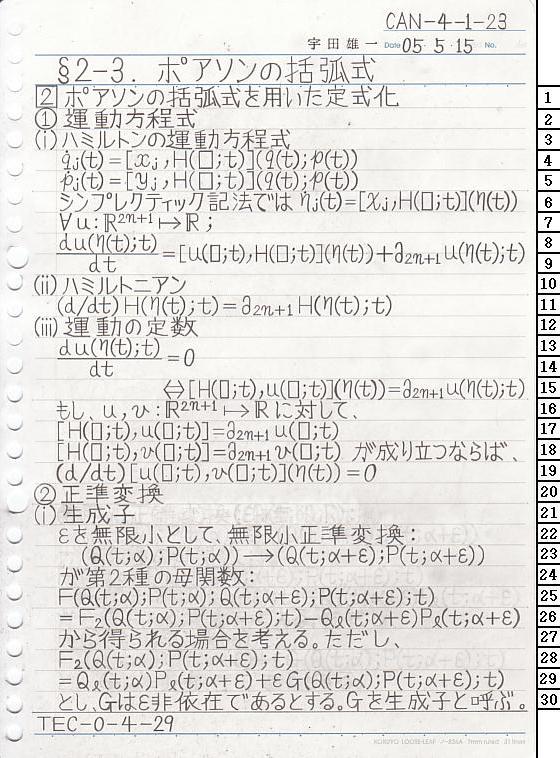 CAN-4-1-23
宇田雄一 Date 05・5・15 No.
§2-3. ポアソンの括弧式
② ポアソンの括弧式を用いた定式化
① 運動方程式
(i) ハミルトンの運動方程式
q̇ⱼ(t)=[xⱼ,H(□;t)](q(t);p(t))
ṗⱼ(t)=[yⱼ,H(□;t)](q(t);p(t))
シンプレクティック記法では η̇ⱼ(t)=[χⱼ,H(□;t)](η(t))
∀u:ℝ²ⁿ⁺¹↦ℝ;
du(η(t);t)/dt=[u(□;t),H(□;t)](η(t))+∂₂ₙ₊₁u(η(t);t)
(ii) ハミルトニアン
(d/dt)H(η(t);t)=∂₂ₙ₊₁H(η(t);t)
(iii) 運動の定数
du(η(t);t)/dt=0
⇔[H(□;t),u(□;t)](η(t))=∂₂ₙ₊₁u(η(t);t)
もし、u,v:ℝ²ⁿ⁺¹↦ℝに対して、
[H(□;t),u(□;t)]=∂₂ₙ₊₁u(□;t)
[H(□;t),v(□;t)]=∂₂ₙ₊₁v(□;t) が成り立つならば、
(d/dt)[u(□;t),v(□;t)](η(t))=0
② 正準変換
(i) 生成子
εを無限小として、無限小正準変換:
(Q(t;α);P(t;α))→(Q(t;α+ε);P(t;α+ε))
が第2種の母関数:
F(Q(t;α);P(t;α);Q(t;α+ε);P(t;α+ε);t)
=F₂(Q(t;α);P(t;α+ε);t)-Qℓ(t;α+ε)Pℓ(t;α+ε)
から得られる場合を考える。ただし、
F₂(Q(t;α);P(t;α+ε);t)
=Qℓ(t;α)Pℓ(t;α+ε)+εG(Q(t;α);P(t;α+ε);t)
とし、Gはε非依存であるとする。Gを生成子と呼ぶ。
TEC-0-4-29
KOKUYO LOOSE-LEAF ノ-836A 7mm ruled 31 lines
1
2
3
4
5
6
7
8
9
10
11
12
13
14
15
16
17
18
19
20
21
22
23
24
25
26
27
28
29
30